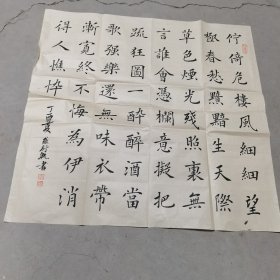 佇倚危樓風細細望
極春愁黯黯生天際
草色煙光殘照裏無
言誰會憑欄意擬把
疏狂圖一醉對酒當
歌強樂還無味衣帶
漸寬終不悔為伊消
得人憔悴
丁酉夏 書